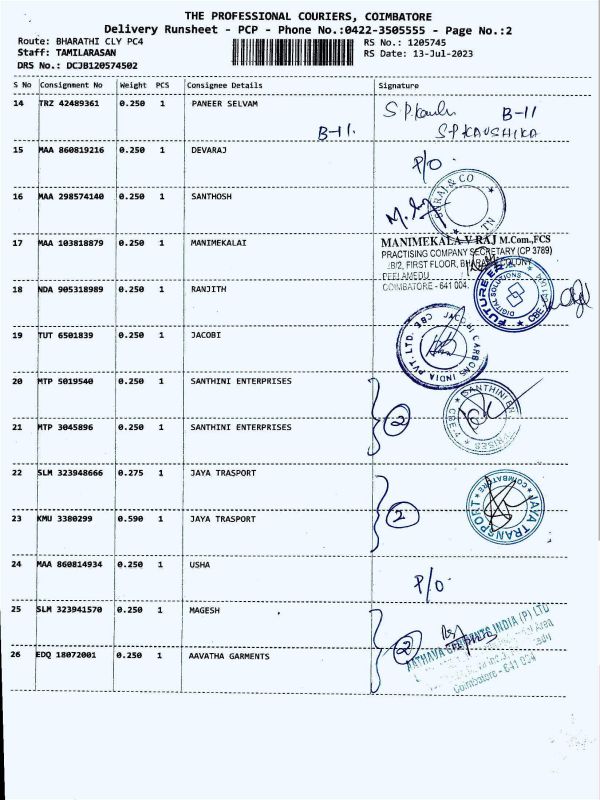 THE PROFESSIONAL COURIERS, COIMBATORE
Delivery Runsheet - PCP - Phone No.:0422-3505555 - Page No.:2
Route: BHARATHI CLY PC4
RS No.: 1205745
Staff: TAMILARASAN
RS Date: 13-Jul-2023
DRS No.: DCJB120574502
S No Consignment No Weight PCS Consignee Details Signature
14 TRZ 42489361 0.250 1 PANEER SELVAM
B-11
B-11.
S P KAUSHIKA
15 MAA 860819216 0.250 1 DEVARAJ
P/O.
16 MAA 298574140 0.250 1 SANTHOSH
& CO
17 MAA 103818879 0.250 1 MANIMEKALAI
MANIMEKALA V RAJ M.Com.,FCS
PRACTISING COMPANY SECRETARY (CP 3789)
FIRST FLOOR, BHARATHI COLONY
PEELAMEDU
COIMBATORE - 641 004.
18 NDA 905318989 0.250 1 RANJITH
DIGITAL SOLUTIONS
19 TUT 6501839 0.250 1 JACOBI
CARBONS INDIA PVT. LTD. CBE
20 MTP 5019540 0.250 1 SANTHINI ENTERPRISES
2
21 MTP 3045896 0.250 1 SANTHINI ENTERPRISES
22 SLM 323948666 0.275 1 JAYA TRASPORT
2
JAYA TRANSPORT
COIMBATORE
23 KMU 3380299 0.590 1 JAYA TRASPORT
24 MAA 860814934 0.250 1 USHA
P/O.
25 SLM 323941570 0.250 1 MAGESH
2
INDIA (P) LTD
Area
Coimbatore - 641 004
26 EDQ 18072001 0.250 1 AAVATHA GARMENTS